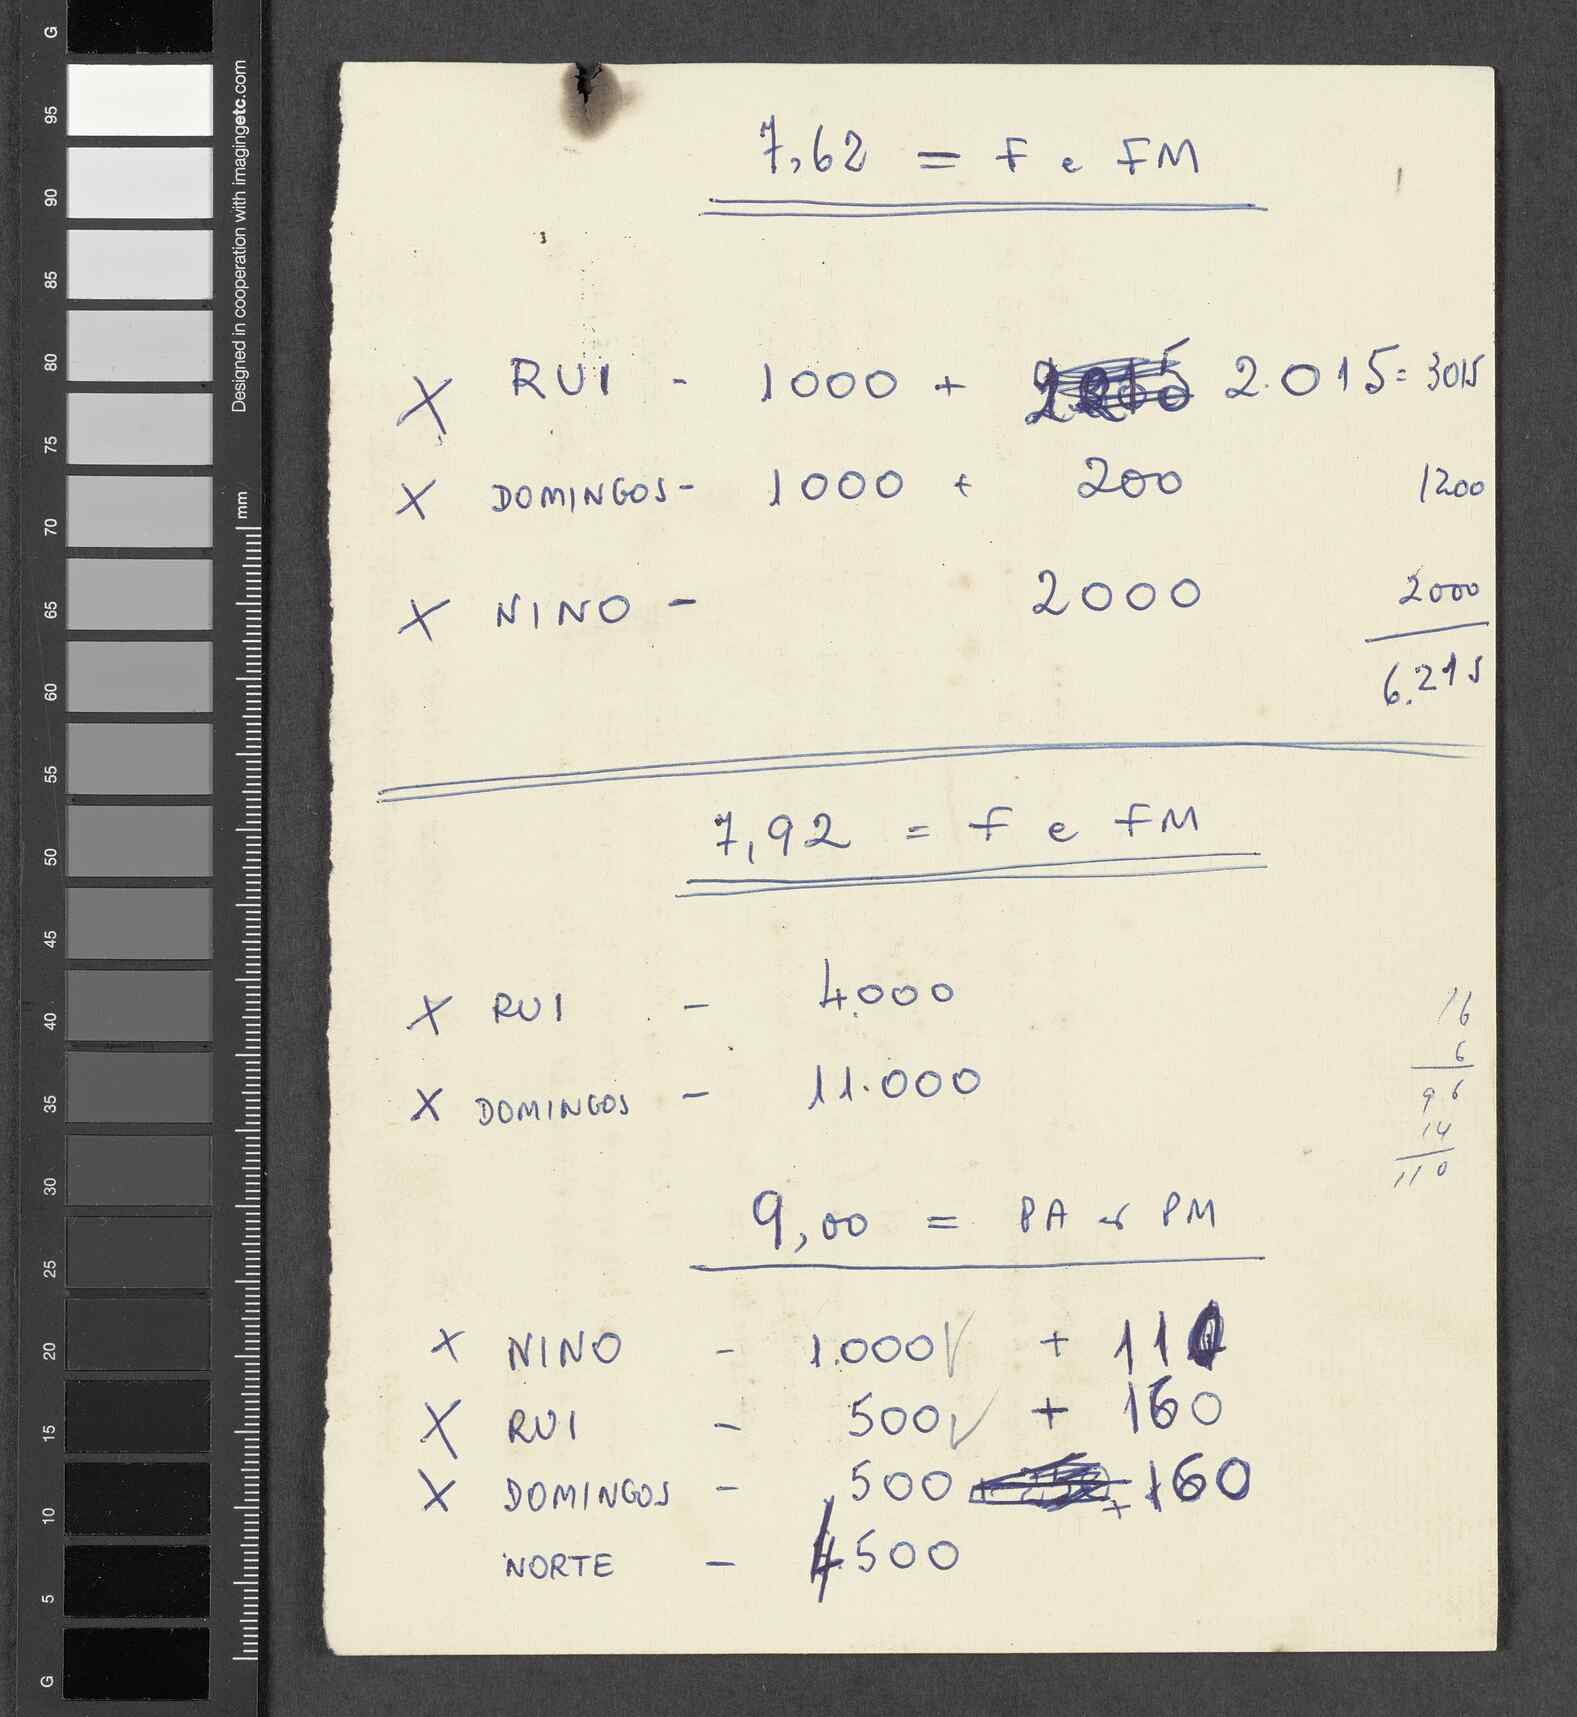 7,62 = F e FM
X RUI - 1000 + 2.015 = 3015
X DOMINGOS - 1000 + 200 1200
X NINO - 2000 2000
6.215
7,92 = F e FM
X RUI - 4.000
X DOMINGOS - 11.000
16
6
96
14
110
9,00 = PA e PM
X NINO - 1.000 + 110
X RUI - 500 + 160
X DOMINGOS - 500 + 160
NORTE - 4.500
G
95
90
85
80
75
70
65
60
55
50
45
40
35
30
25
20
15
10
5
G
Designed in cooperation with imagingetc.com
mm